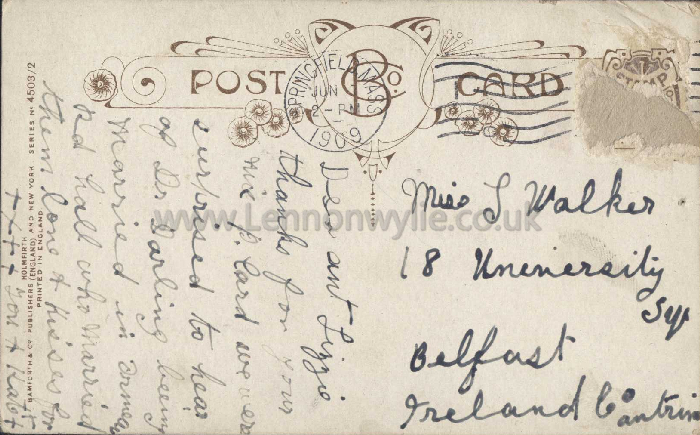 POST CARD
B & Co.
SPRINGFIELD, MASS.
JUN
2 - PM
1909
STAMP
Dear ant Lizzie
thanks for your
nice P. Card we were
surprised to hear
of Dr Darling being
Married in
Rd hall who Married
them love & kisses for
you & Kate
+ + + +
Miss L Walker
18 Unenersity
Sq
Belfast
Ireland Co antrim
BAMFORTH & CO. PUBLISHERS (ENGLAND) AND NEW YORK
HOLMFIRTH
PRINTED IN ENGLAND
SERIES No 4503/2
www.Lennonwylie.co.uk